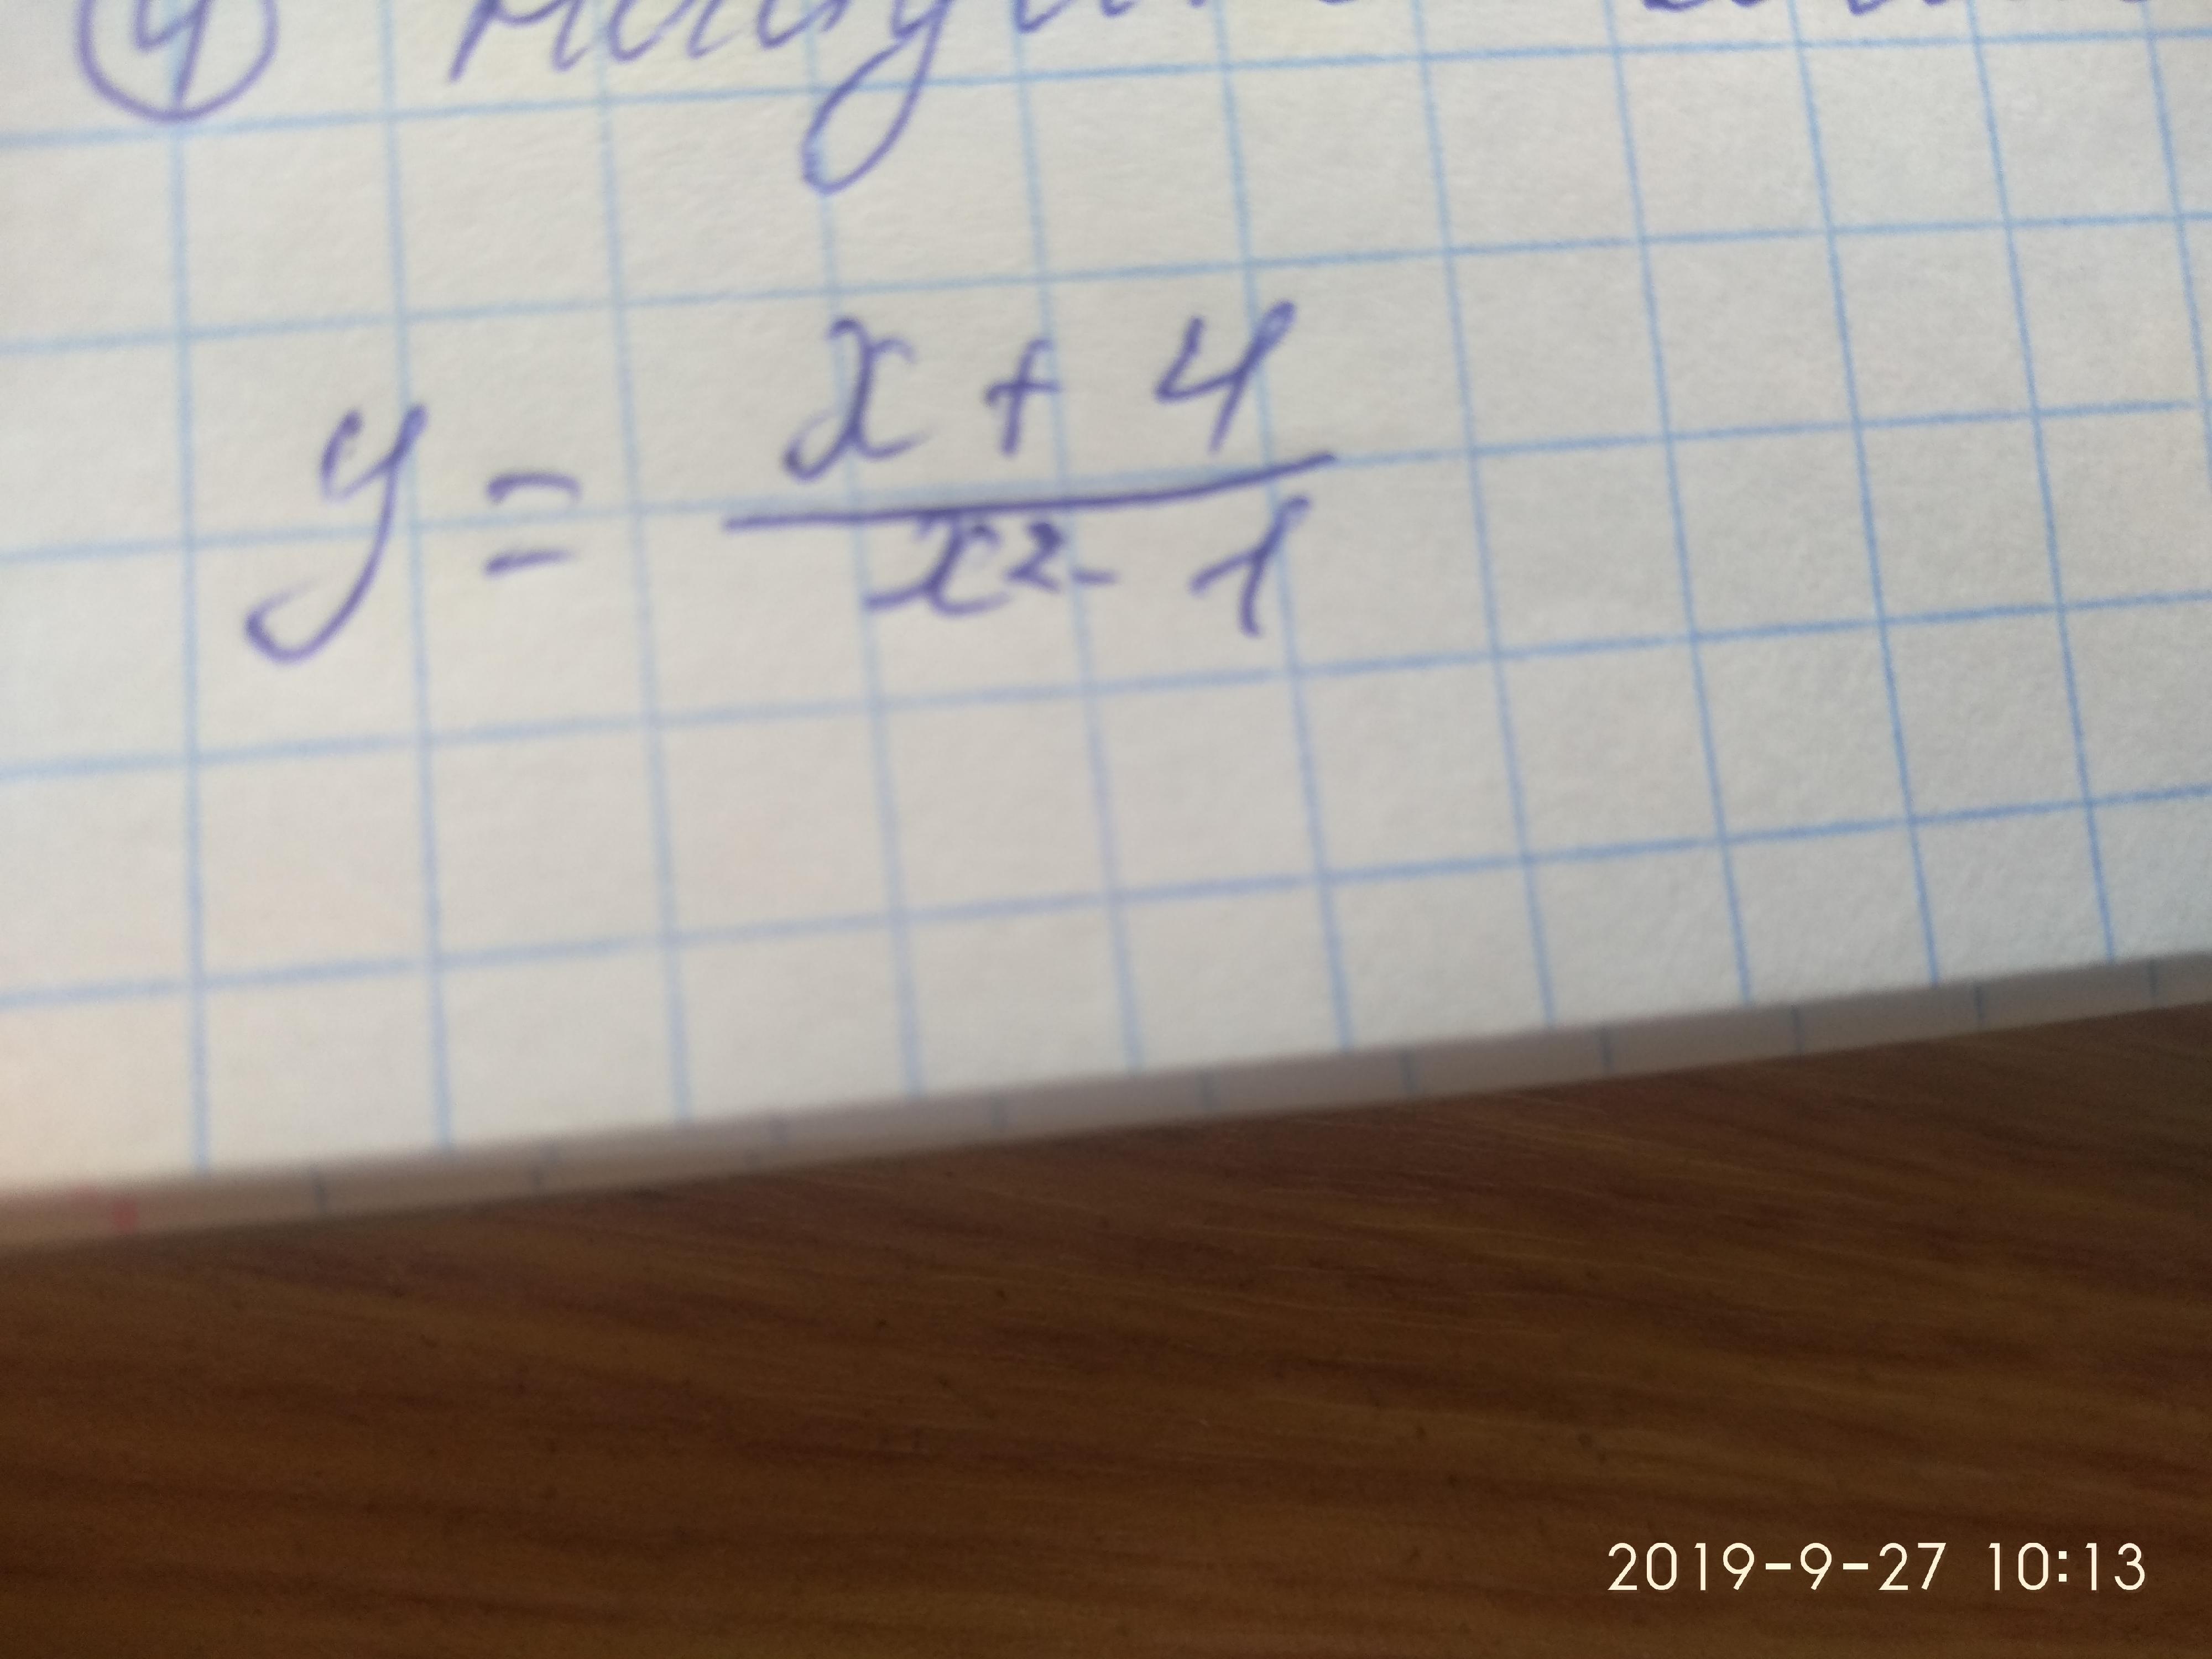 4
y = x + 4 / x² - 1
2019-9-27 10:13